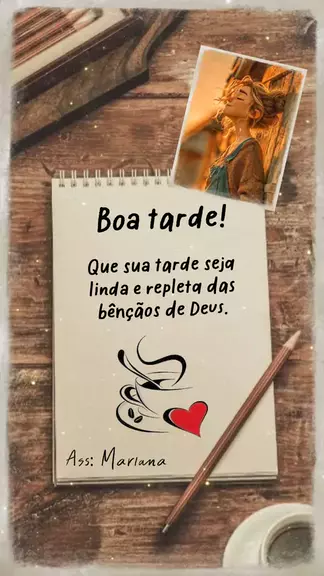 Boa tarde!
Que sua tarde seja
linda e repleta das
bênçãos de Deus.
Ass: Mariana